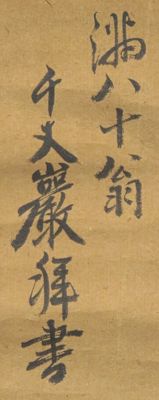 満八十翁
千丈巖拜書